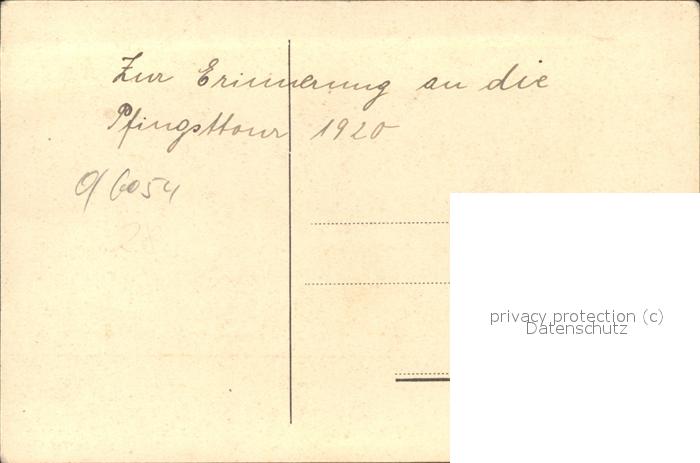 Zur Erinnerung an die
Pfingsttour 1920
6054
privacy protection (c)
Datenschutz